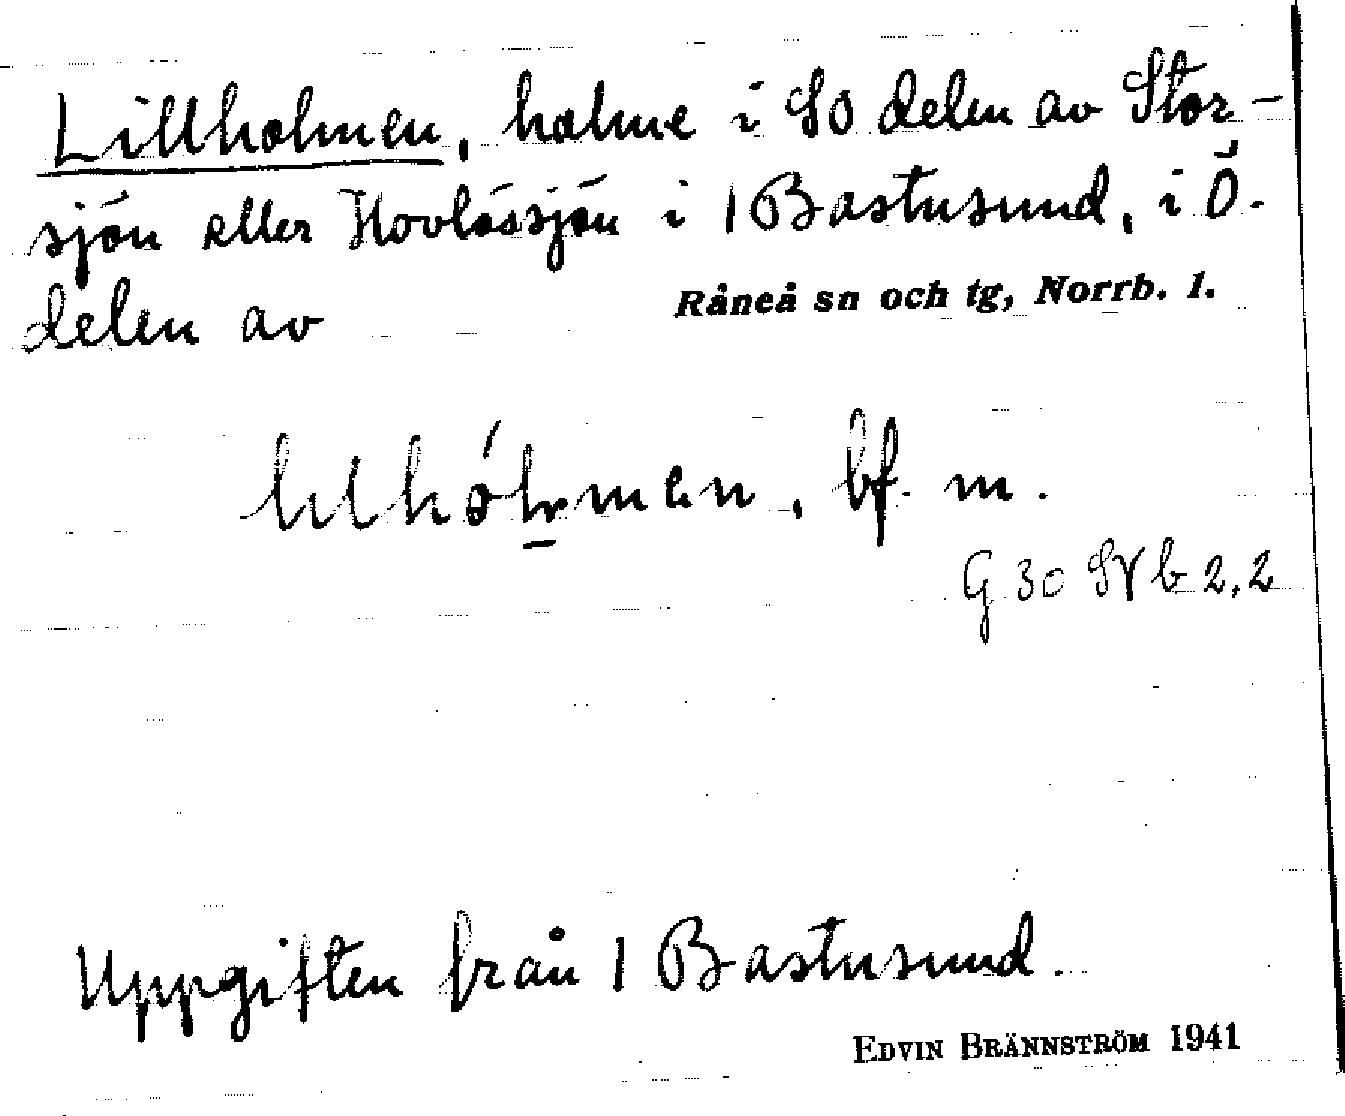 Lillholmen, holme i SO delen av Stor-
sjön eller Hovlössjön i 1 Bastusund, i Ö.
delen av Råneå sn och tg, Norrb. l.
lilhólmen, bf. m.
G 30 SV b 2,2
Uppgiften från 1 Bastusund.
EDVIN BRÄNNSTRÖM 1941